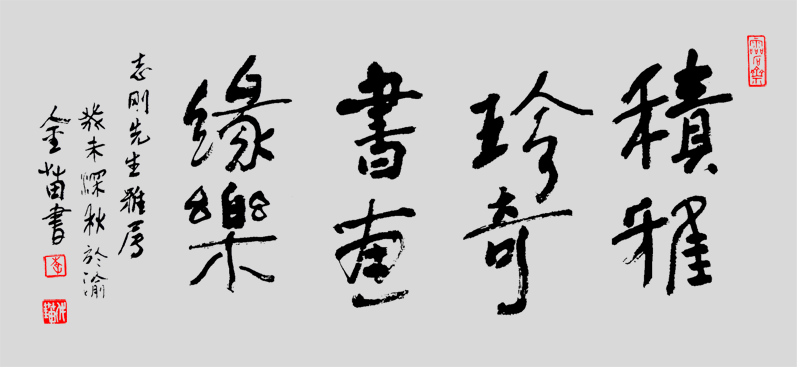 積雅
珍奇
書画
緣樂
志刚先生雅属
癸未深秋於渝
金苗書